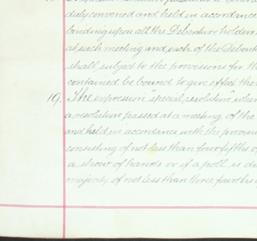 duly convened and held in accordance
binding upon all the Debenture holders
at such meeting and each of the Debent
shall subject to the provisions for th
contained be bound to give effect there
19. The expression "special resolution" when
a resolution passed at a meeting of the
and held in accordance with the provisio
consisting of not less than four fifths of
a show of hands or if a poll is de
majority of not less than three fourths